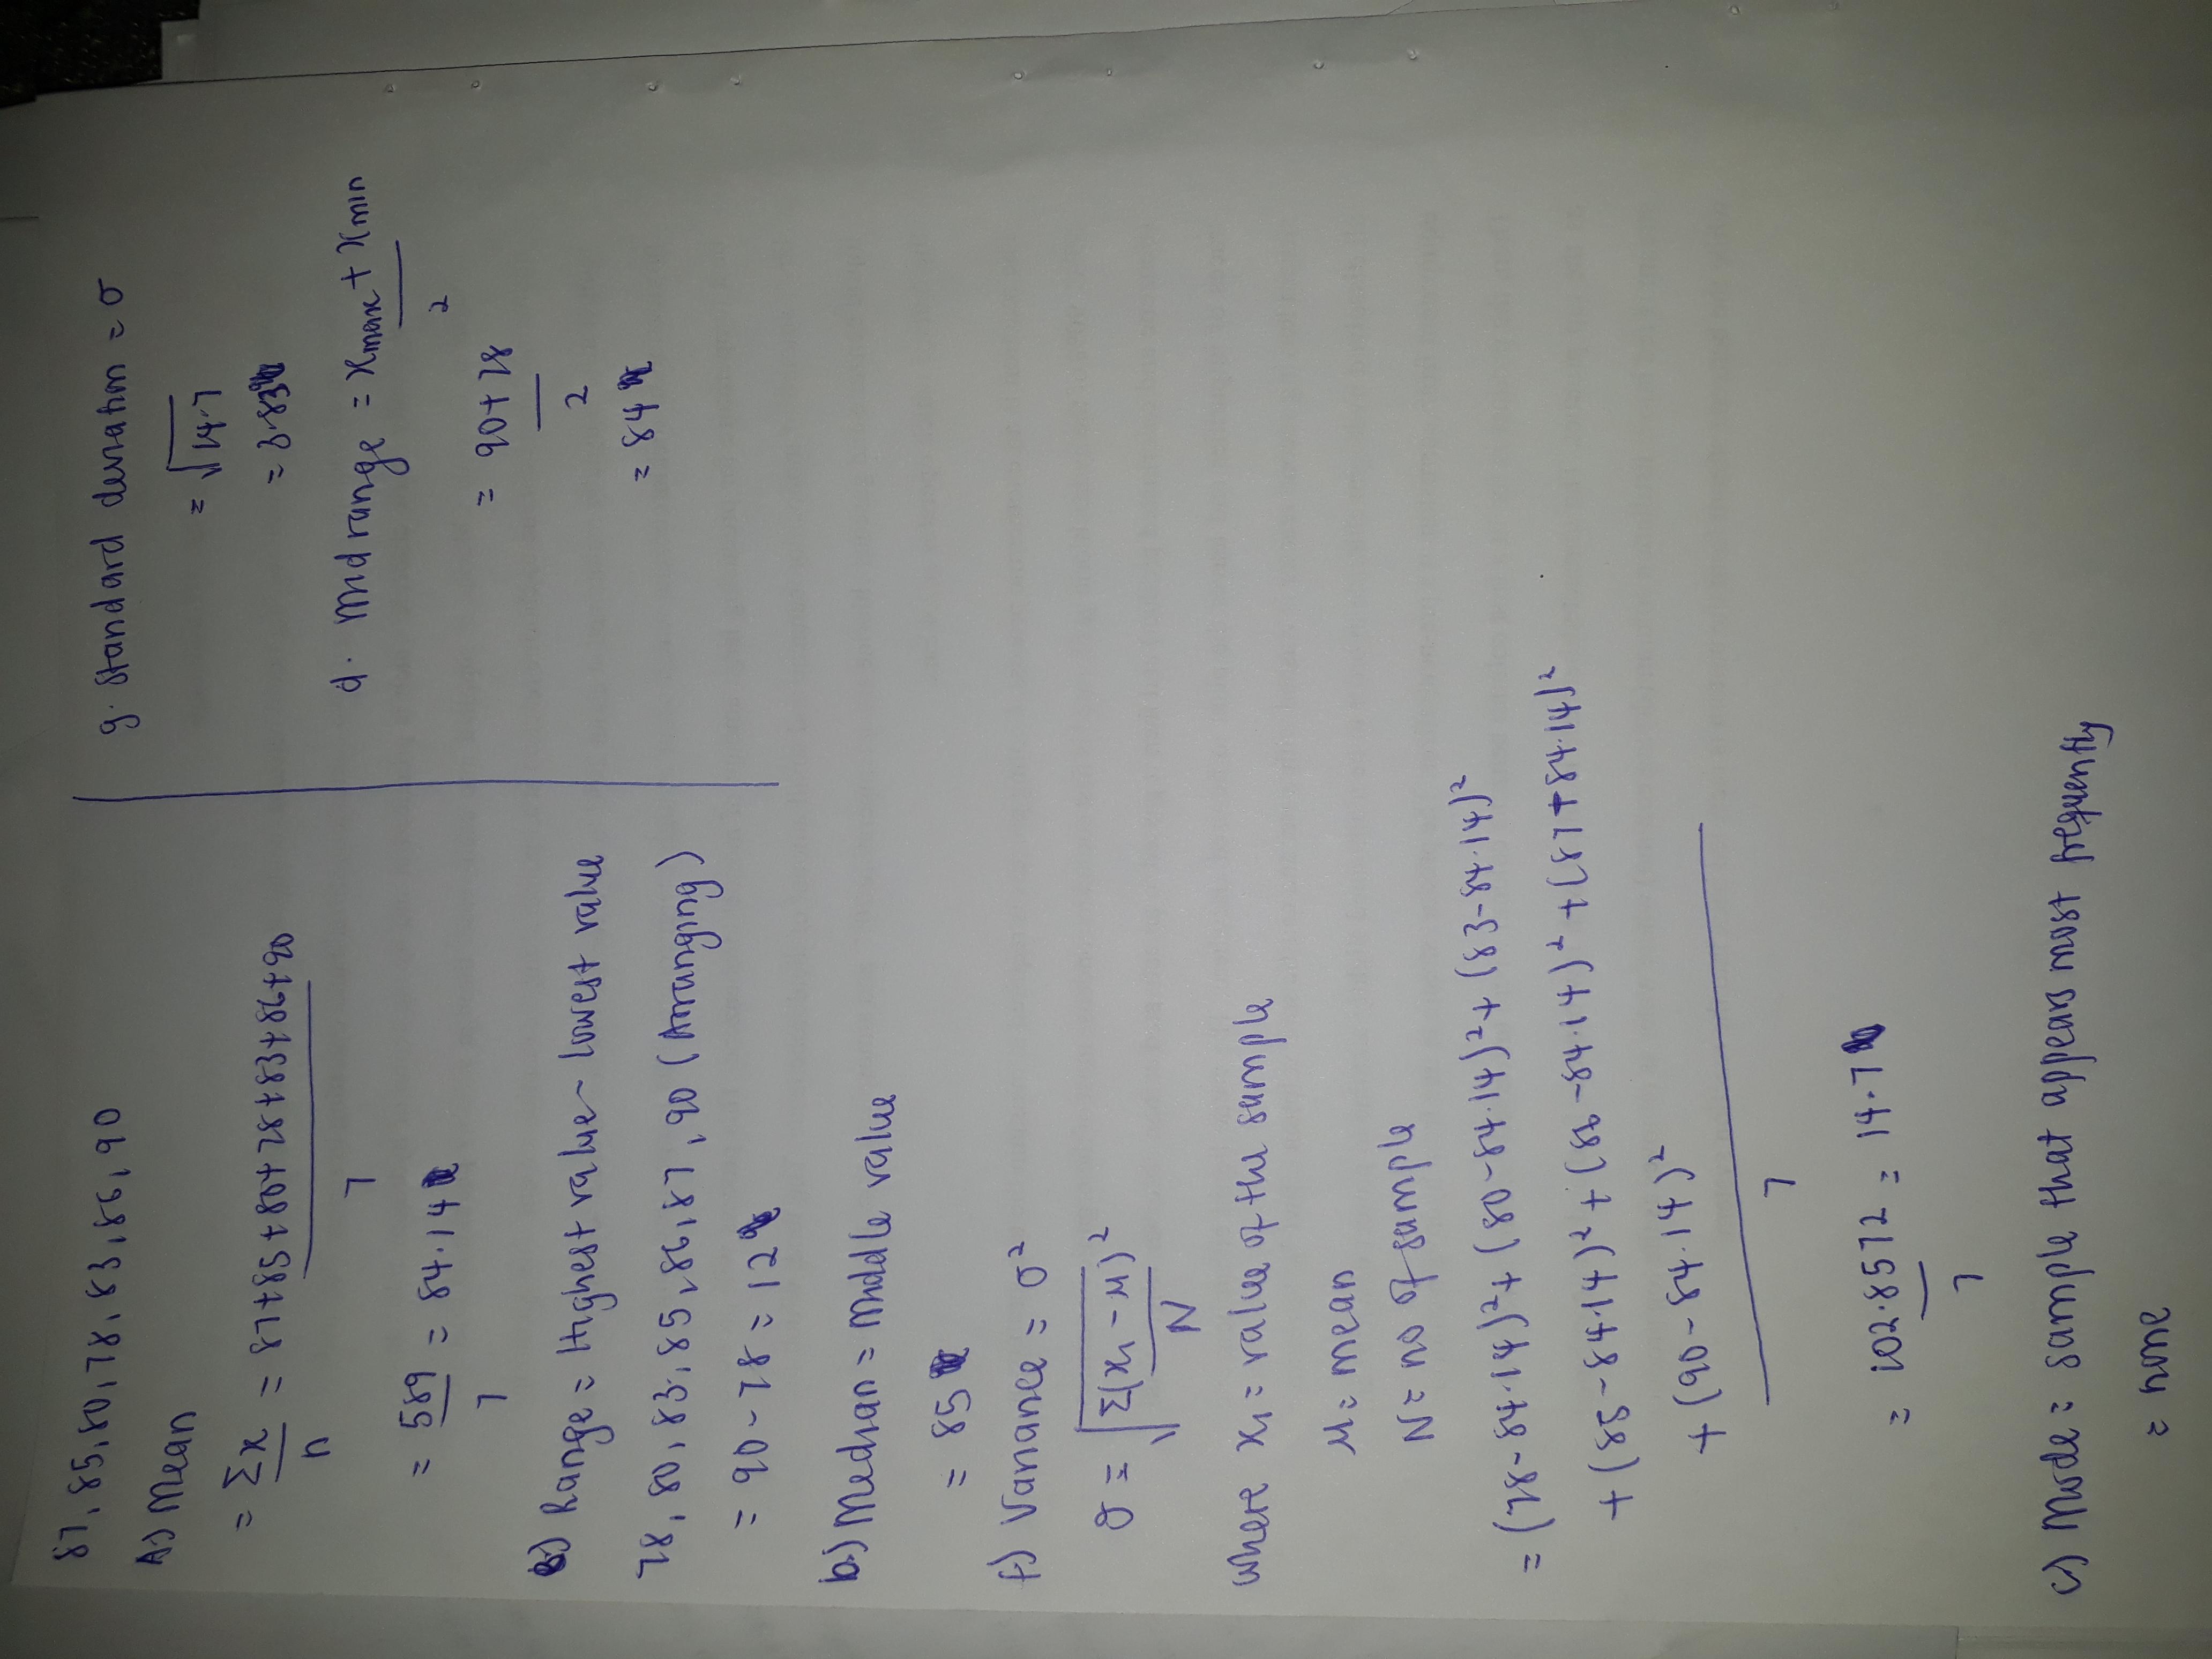 87, 85, 80, 78, 83, 86, 90
A.) Mean
= Σx = 87+85+80+78+83+86+90
n 7
= 589 = 84.14
7
Range = Highest value - lowest value
78, 80, 83, 85, 86, 87, 90 (Arranging)
= 90-78 = 12
b.) Median = middle value
= 85
f) Variance = σ²
σ = √Σ(xi - μ)²
N
where xi = value of the sample
μ = mean
N = no of sample
= (78-84.14)² + (80-84.14)² + (83-84.14)²
+ (85-84.14)² + (86-84.14)² + (87+84.14)²
+ (90-84.14)²
7
= 102.8572 = 14.7
7
c) Mode = sample that appears most frequently
= none
g. Standard deviation = σ
= √14.7
= 3.83
d. Mid range = xmax + xmin
2
= 90+78
2
= 84